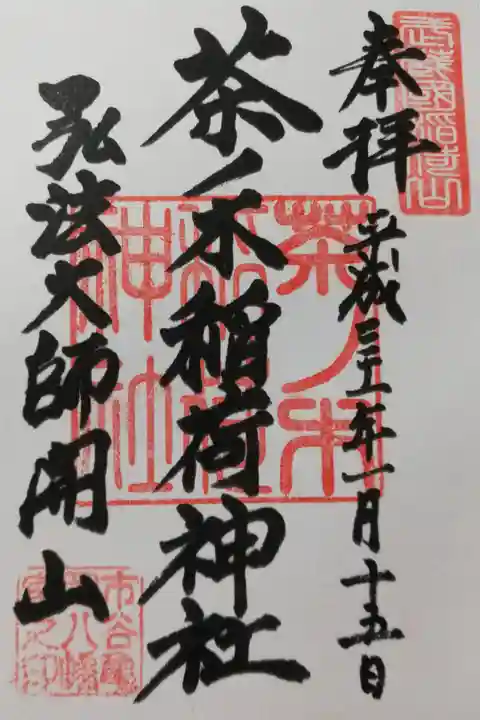 奉拝
平成三十一年一月十五日
茶ノ木稲荷神社
弘法大師開山
茶ノ木
稲荷
神社
市谷龜
岡八幡
宮之印